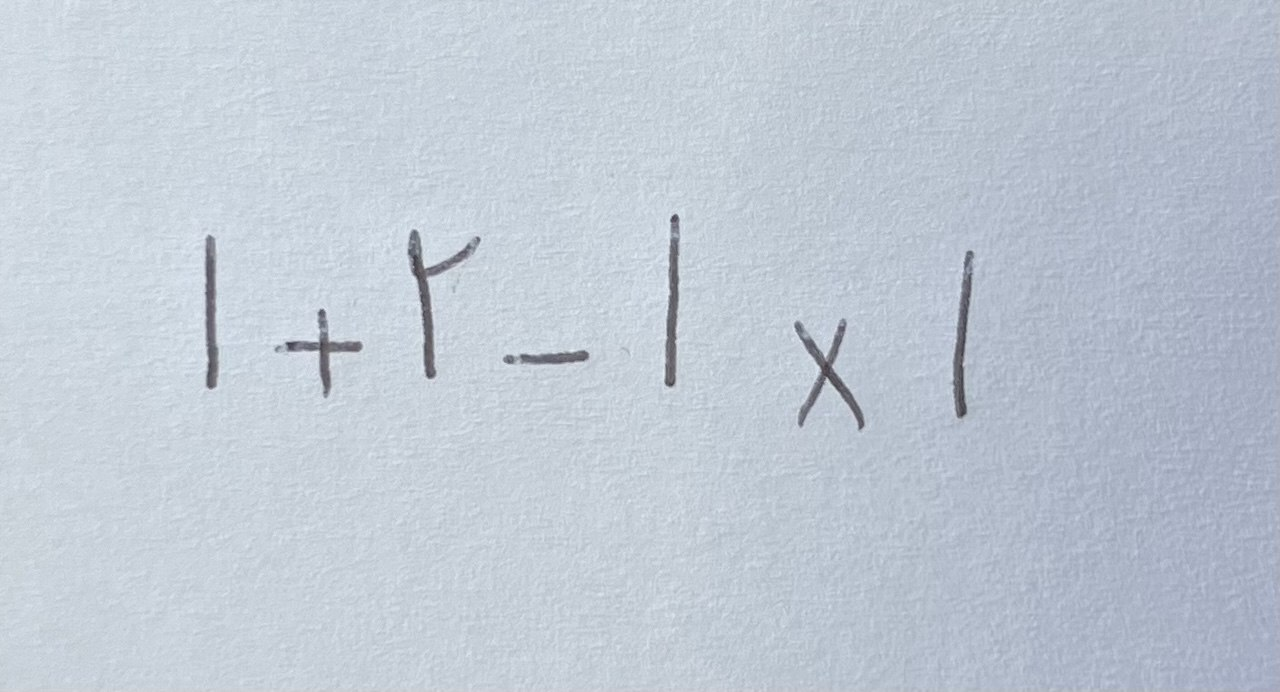 ۱+۲-۱×۱